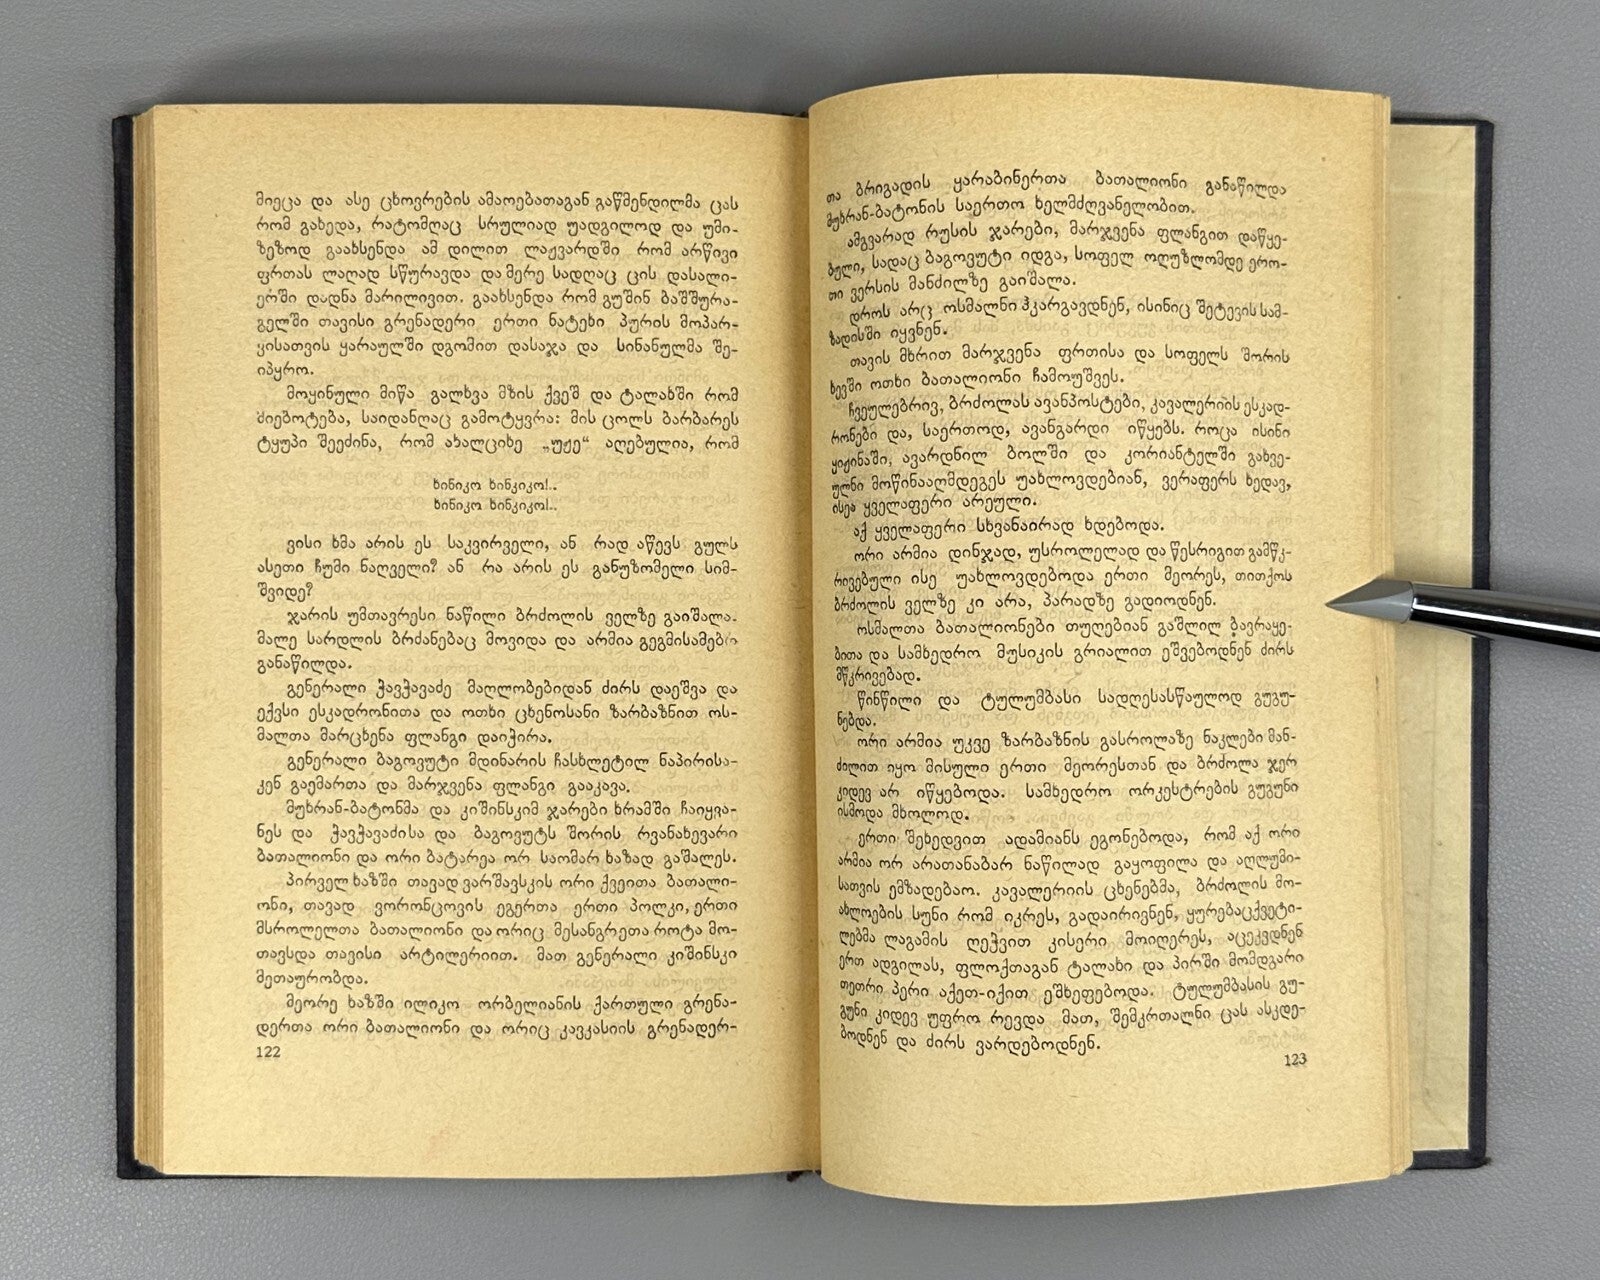 მიეცა და ასე ცხოვრების ამაოებათაგან გაწმენდილმა ცას
რომ გახედა, რატომღაც სრულიად უადგილოდ და უმი-
ზეზოდ გაახსენდა ამ დილით ლაჟვარდში რომ არწივი
ფრთას ლაღად სწურავდა და მერე სადღაც ცის დასალი-
ერში დადნა მარილივით. გაახსენდა რომ გუშინ ბაშშურა-
გელში თავისი გრენადერი ერთი ნატეხი პურის მოპარ-
ვისათვის ყარაულში დგომით დასაჯა და სინანულმა შე-
იპყრო.
მოყინული მიწა გალხვა მზის ქვეშ და ტალახში რომ
ძიებოტება, საიდანღაც გამოტყვრა: მის ცოლს ბარბარეს
ტყუპი შეეძინა, რომ ახალციხე „უჟე“ აღებულია, რომ
ხინიკო ხინკიკო!..
ხინიკო ხინკიკო!..
ვისი ხმა არის ეს საკვირველი, ან რად აწევს გულს
ასეთი ჩუმი ნაღველი? ან რა არის ეს განუზომელი სიმ-
შვიდე?
ჯარის უმთავრესი ნაწილი ბრძოლის ველზე გაიშალა.
მალე სარდლის ბრძანებაც მოვიდა და არმია გეგმისამებრ
განაწილდა.
გენერალი ჭავჭავაძე მაღლობებიდან ძირს დაეშვა და
ექვსი ესკადრონითა და ოთხი ცხენოსანი ზარბაზნით ოს-
მალთა მარცხენა ფლანგი დაიჭირა.
გენერალი ბაგოვუტი მდინარის ჩასხლეტილ ნაპირისა-
კენ გაემართა და მარჯვენა ფლანგი გააკავა.
მუხრან-ბატონმა და კიშინსკიმ ჯარები ხრამში ჩაიყვა-
ნეს და ჭავჭავაძისა და ბაგოვუტს შორის რვანახევარი
ბათალიონი და ორი ბატარეა ორ საომარ ხაზად გაშალეს.
პირველ ხაზში თავად ვარშავსკის ორი ქვეითა ბათალი-
ონი, თავად ვორონცოვის ეგერთა ერთი პოლკი, ერთი
მსროლელთა ბათალიონი და ორიც მესანგრეთა როტა მო-
თავსდა თავისი არტილერიით. მათ გენერალი კიშინსკი
მეთაურობდა.
მეორე ხაზში ილიკო ორბელიანის ქართული გრენა-
დერთა ორი ბათალიონი და ორიც კავკასიის გრენადერ-
122
თა ბრიგადის ყარაბინერთა ბათალიონი განაწილდა
მუხრან-ბატონის საერთო ხელმძღვანელობით.
ამგვარად რუსის ჯარები, მარჯვენა ფლანგით დაწყე-
ბული, სადაც ბაგოვუტი იდგა, სოფელ ოღუზლომდე ერო-
თი ვერსის მანძილზე გაიშალა.
დროს არც ოსმალნი ჰკარგავდნენ, ისინიც შეტევის სამ-
ზადისში იყვნენ.
თავის მხრით მარჯვენა ფრთისა და სოფელს შორის
ხევში ოთხი ბათალიონი ჩამოუშვეს.
ჩვეულებრივ, ბრძოლას ავანპოსტები, კავალერიის ესკად-
რონები და, საერთოდ, ავანგარდი იწყებს. როცა ისინი
ყიჟინაში, ავარდნილ ბოლში და კორიანტელში გახვე-
ულნი მოწინააღმდეგეს უახლოვდებიან, ვერაფერს ხედავ,
ისეა ყველაფერი არეული.
აქ ყველაფერი სხვანაირად ხდებოდა.
ორი არმია დინჯად, უსროლელად და წესრიგით გამწკ-
რივებული ისე უახლოვდებოდა ერთი მეორეს, თითქოს
ბრძოლის ველზე კი არა, პარადზე გადიოდნენ.
ოსმალთა ბათალიონები თუღებიან გაშლილ ბავრაყე-
ბითა და სამხედრო მუსიკის გრიალით ეშვებოდნენ ძირს
მწკრივებად.
წინწილი და ტულუმბასი სადღესასწაულოდ გუგუ-
ნებდა.
ორი არმია უკვე ზარბაზნის გასროლაზე ნაკლები მან-
ძილით იყო მისული ერთი მეორესთან და ბრძოლა ჯერ
კიდევ არ იწყებოდა. სამხედრო ორკესტრების გუგუნი
ისმოდა მხოლოდ.
ერთი შეხედვით ადამიანს ეგონებოდა, რომ აქ ორი
არმია ორ არათანაბარ ნაწილად გაყოფილა და აღლუმი-
სათვის ემზადებაო. კავალერიის ცხენებმა, ბრძოლის მო-
ახლოების სუნი რომ იკრეს, გადაირივნენ, ყურებაცქვეტი-
ლებმა ლაგამის ღეჭვით კისერი მოიღერეს, აცეკვდნენ
ერთ ადგილას, ფლოქთაგან ტალახი და პირში მომდგარი
თეთრი პერი აქეთ-იქით ეშხეფებოდა. ტულუმბასის გუ-
გუნი კიდევ უფრო რევდა მათ, შემკრთალნი ცას ასკდე-
ბოდნენ და ძირს ვარდებოდნენ.
123